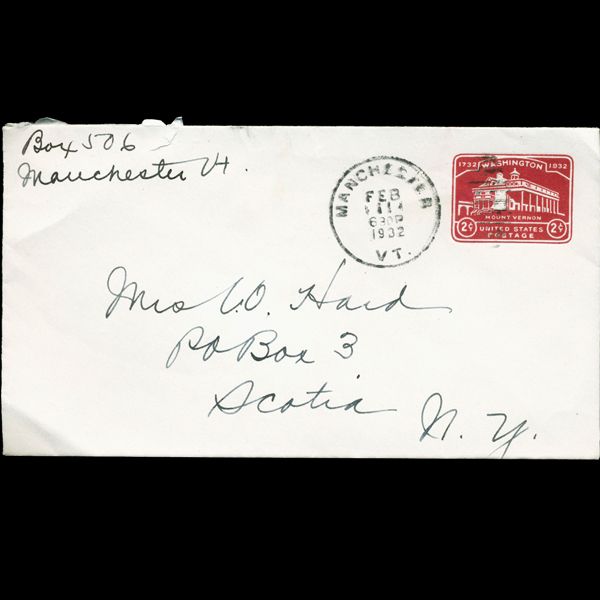 Box 506
Manchester Vt.
MANCHESTER
FEB
630P
1932
VT.
1732 WASHINGTON 1932
MOUNT VERNON
2¢ UNITED STATES 2¢
POSTAGE
Mrs V.O. Hard
PO Box 3
Scotia N. Y.